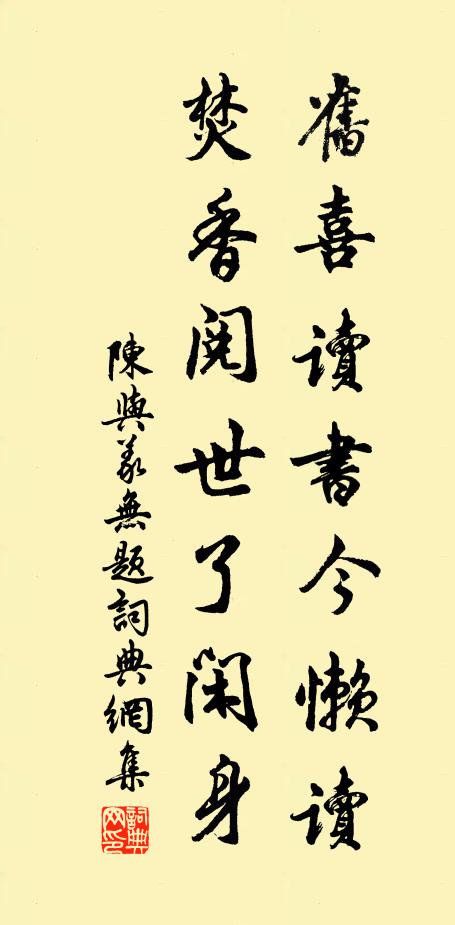 舊喜讀書今懒讀
焚香閱世了闲身
陳與義無題詞典網集
詞典网印